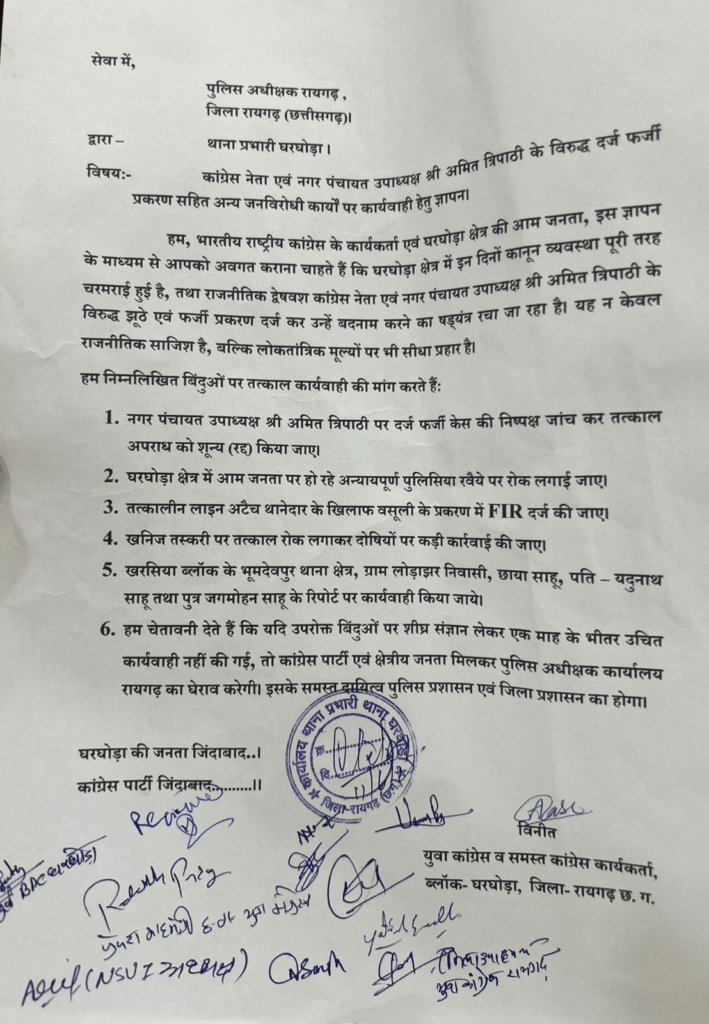 सेवा में,
पुलिस अधीक्षक रायगढ़ ,
जिला रायगढ़ (छत्तीसगढ़)।
द्वारा – थाना प्रभारी घरघोड़ा ।
विषयः- कांग्रेस नेता एवं नगर पंचायत उपाध्यक्ष श्री अमित त्रिपाठी के विरुद्ध दर्ज फर्जी
प्रकरण सहित अन्य जनविरोधी कार्यों पर कार्यवाही हेतु ज्ञापन।
हम, भारतीय राष्ट्रीय कांग्रेस के कार्यकर्ता एवं घरघोड़ा क्षेत्र की आम जनता, इस ज्ञापन
के माध्यम से आपको अवगत कराना चाहते हैं कि घरघोड़ा क्षेत्र में इन दिनों कानून व्यवस्था पूरी तरह
चरमराई हुई है, तथा राजनीतिक द्वेषवश कांग्रेस नेता एवं नगर पंचायत उपाध्यक्ष श्री अमित त्रिपाठी के
विरुद्ध झूठे एवं फर्जी प्रकरण दर्ज कर उन्हें बदनाम करने का षड्यंत्र रचा जा रहा है। यह न केवल
राजनीतिक साजिश है, बल्कि लोकतांत्रिक मूल्यों पर भी सीधा प्रहार है।
हम निम्नलिखित बिंदुओं पर तत्काल कार्यवाही की मांग करते हैं:
1. नगर पंचायत उपाध्यक्ष श्री अमित त्रिपाठी पर दर्ज फर्जी केस की निष्पक्ष जांच कर तत्काल
अपराध को शून्य (रद्द) किया जाए।
2. घरघोड़ा क्षेत्र में आम जनता पर हो रहे अन्यायपूर्ण पुलिसिया रवैये पर रोक लगाई जाए।
3. तत्कालीन लाइन अटैच थानेदार के खिलाफ वसूली के प्रकरण में FIR दर्ज की जाए।
4. खनिज तस्करी पर तत्काल रोक लगाकर दोषियों पर कड़ी कार्रवाई की जाए।
5. खरसिया ब्लॉक के भूमदेवपुर थाना क्षेत्र, ग्राम लोड़ाझर निवासी, छाया साहू, पति – यदुनाथ
साहू तथा पुत्र जगमोहन साहू के रिपोर्ट पर कार्यवाही किया जाये।
6. हम चेतावनी देते हैं कि यदि उपरोक्त बिंदुओं पर शीघ्र संज्ञान लेकर एक माह के भीतर उचित
कार्यवाही नहीं की गई, तो कांग्रेस पार्टी एवं क्षेत्रीय जनता मिलकर पुलिस अधीक्षक कार्यालय
रायगढ़ का घेराव करेगी। इसके समस्त दायित्व पुलिस प्रशासन एवं जिला प्रशासन का होगा।
कार्यालय थाना प्रभारी थाना घरघोड़ा
क्र.
दि.
जिला-रायगढ़ (छ.ग.)
घरघोड़ा की जनता जिंदाबाद..।
कांग्रेस पार्टी जिंदाबाद..........।।
विनीत
युवा कांग्रेस व समस्त कांग्रेस कार्यकर्ता,
ब्लॉक- घरघोड़ा, जिला- रायगढ़ छ. ग.
(NSUI अध्यक्ष)